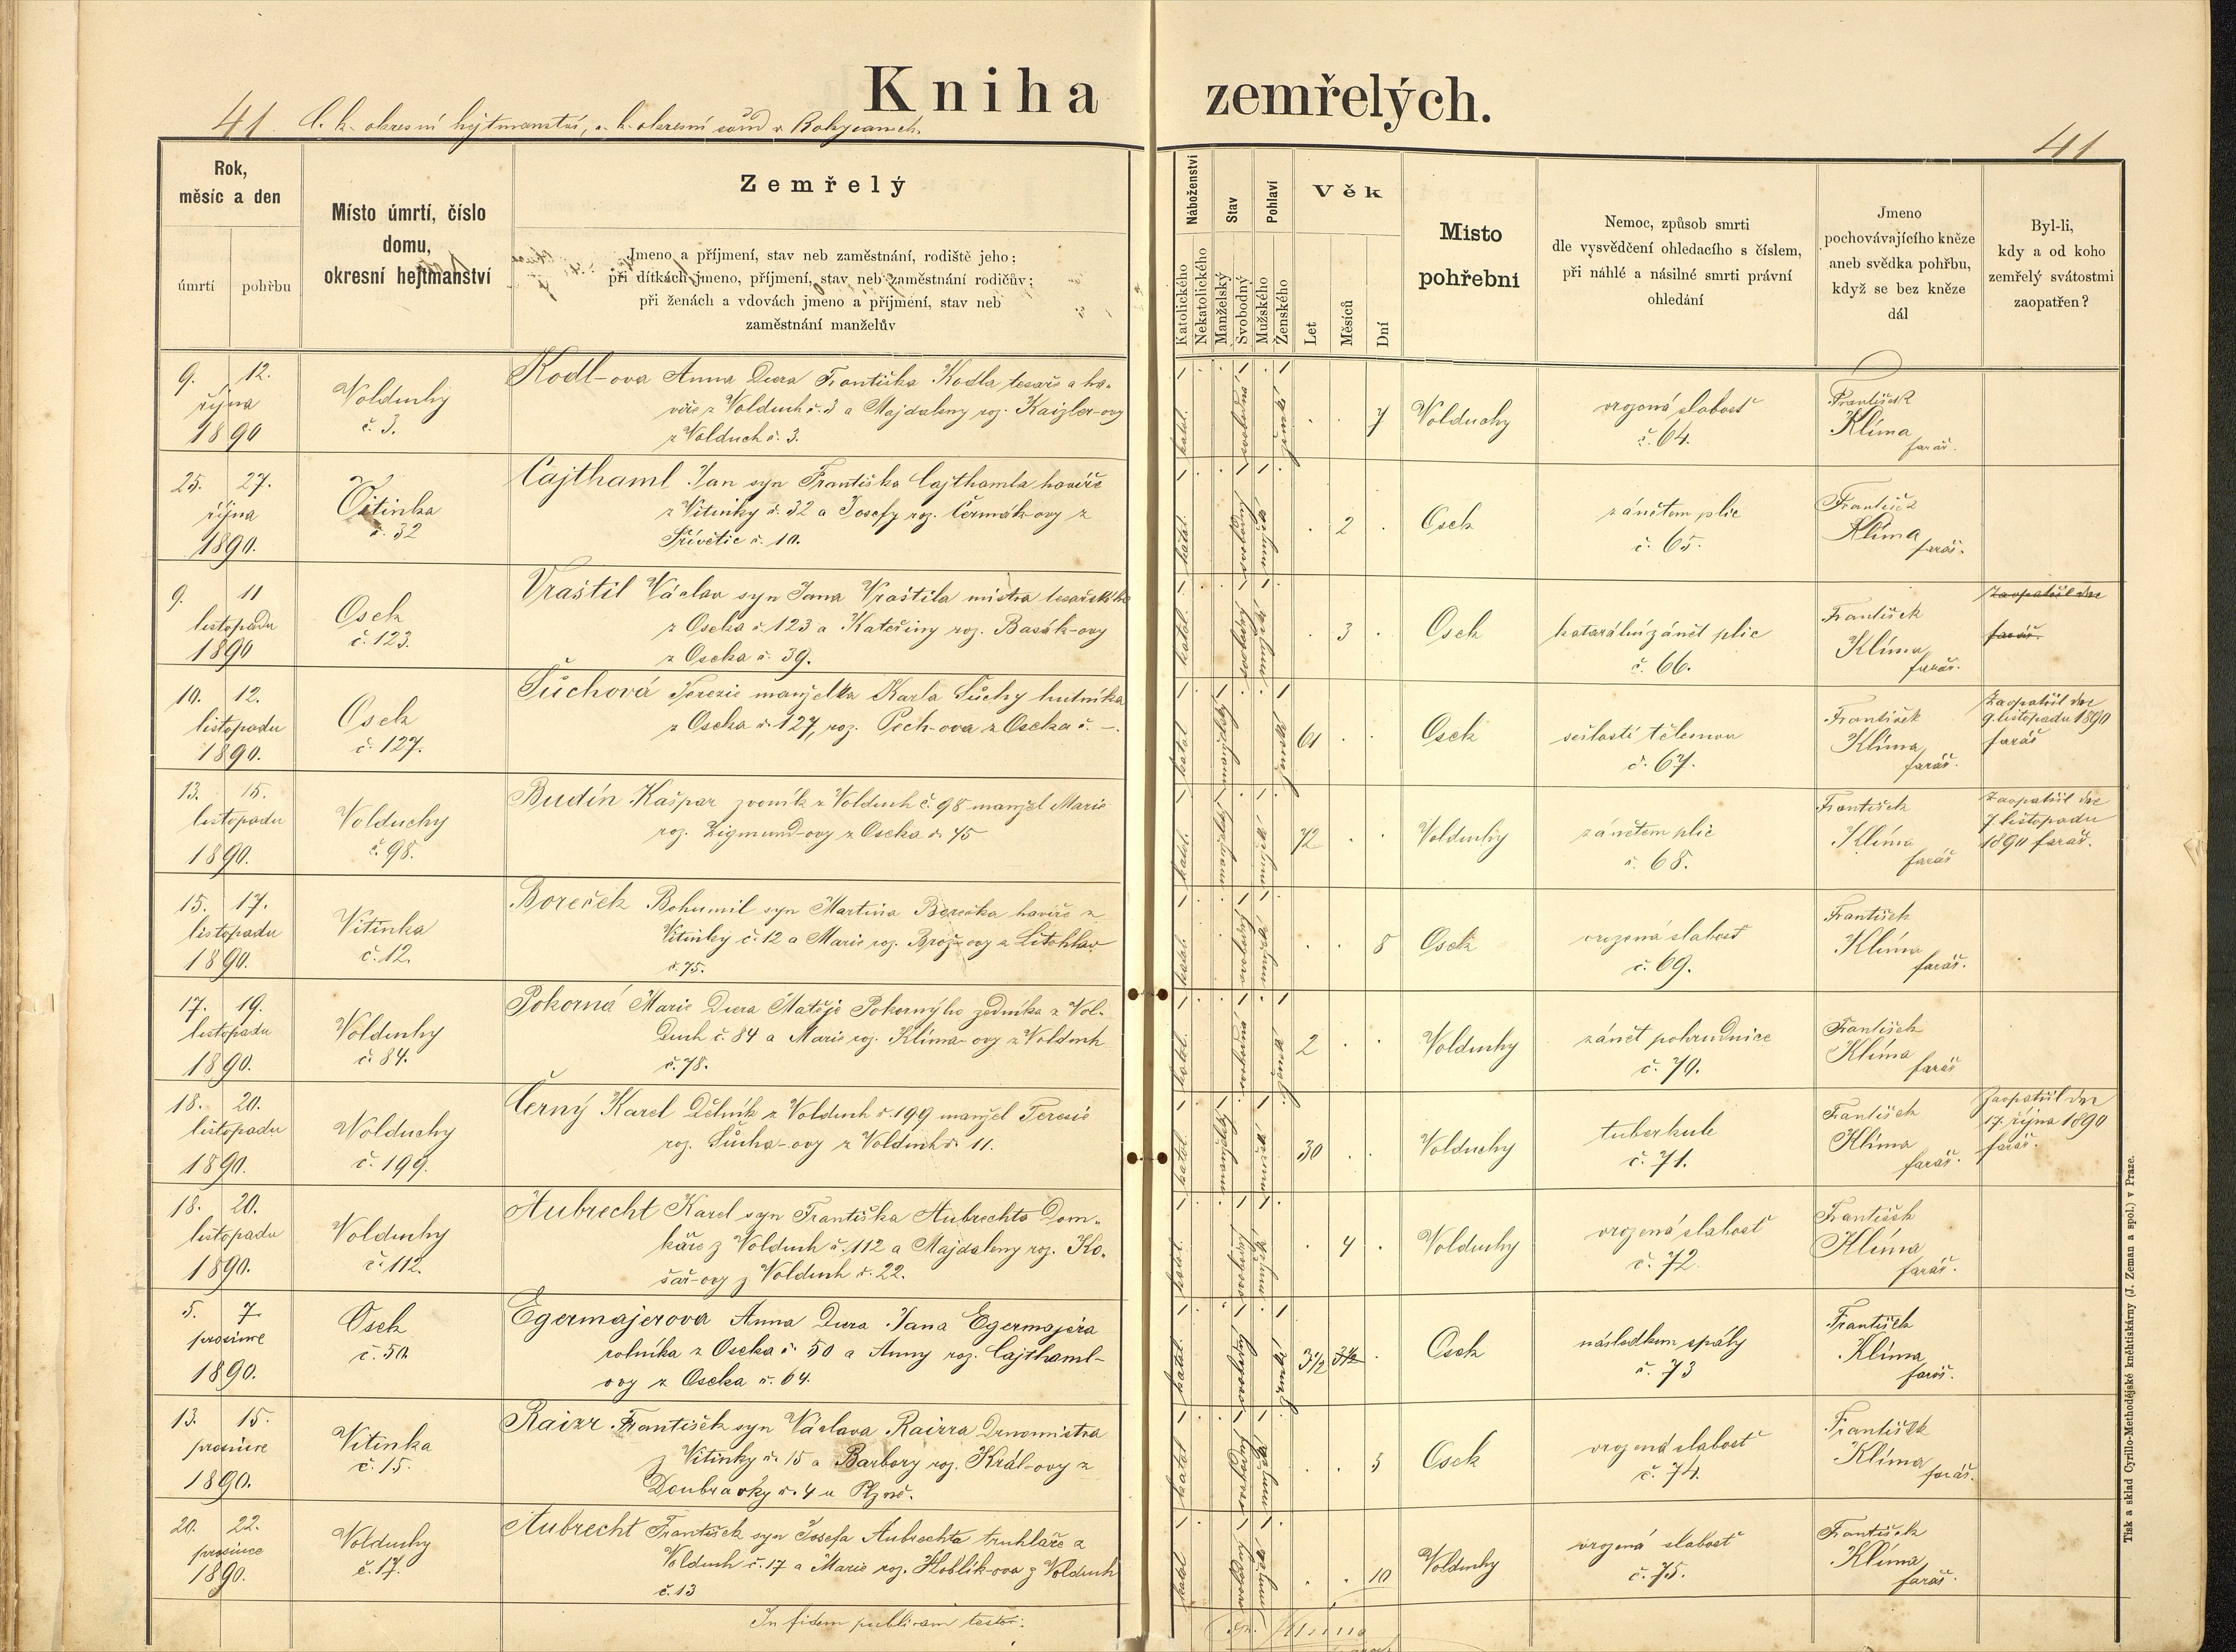 Kniha zemřelých.
41 C. k. okresní hejtmanství, c. k. okresní soud v Rokycanech.
41
Rok,
měsíc a den
úmrtí
pohřbu
Místo úmrtí, číslo
domu,
okresní hejtmanství
Zemřelý
Jmeno a příjmení, stav neb zaměstnání, rodiště jeho;
při dítkách jmeno, příjmení, stav neb zaměstnání rodičův;
při ženách a vdovách jmeno a příjmení, stav neb
zaměstnání manželův
Náboženství
Katolického
Nekatolického
Stav
Manželský
Svobodný
Pohlaví
Mužského
Ženského
Věk
Let
Měsíců
Dní
Místo
pohřební
Nemoc, způsob smrti
dle vysvědčení ohledacího s číslem,
při náhlé a násilné smrti právní
ohledání
Jmeno
pochovávajícího kněze
aneb svědka pohřbu,
když se bez kněze
dál
Byl-li,
kdy a od koho
zemřelý svátostmi
zaopatřen?
9. 12.
října
1890
Volduchy
č. 3.
Kodl-ova Anna Dcera Františka Kodla tesaře a ha-
víře z Volduch č. 3 a Majdaleny roz. Kaizler-ovy
z Volduch č. 3.
katol. svobodná ženské
7
Volduchy
vrozená slabosť
č. 64.
František
Klíma
farář.
25. 27.
října
1890.
Vitinka
č. 32
Cajthaml Jan syn Františka Cajthamla havíře
z Vitinky č. 32 a Josefy roz. Čermák-ovy z
Střívětic č. 10.
katol. svobodný mužské
2
Osek
zánětem plic
č. 65.
František
Klíma
farář.
9. 11
listopadu
1890
Osek
č. 123.
Vraštil Václav syn Jana Vraštila mistra tesařského
z Oseka č. 123 a Kateřiny roz. Basák-ovy
z Oseka č. 39.
katol. svobodný mužské
3
Osek
katarální zánět plic
č. 66.
František
Klíma
farář.
Zaopatřil dne
farář.
10. 12.
listopadu
1890.
Osek
č. 127.
Šůchová Terezie manželka Karla Šůchy hutníka
z Oseka č. 127, roz. Pech-ova z Oseka č. –.
katol manželský ženské
61
Osek
sešlostí tělesnou
č. 67.
František
Klíma
farář.
Zaopatřil dne
9. listopadu 1890
farář
13. 15.
listopadu
1890.
Volduchy
č. 98.
Budín Kašpar zvoník z Volduch č. 98 manžel Marie
roz. Zigmund-ovy z Oseka č. 45
katol. manželský mužské
72
Volduchy
zánětem plic
č. 68.
František
Klíma
farář
Zaopatřil dne
7. listopadu
1890 farář.
15. 17.
listopadu
1890.
Vitinka
č. 12.
Boreček Bohumil syn Martina Borečka havíře z
Vitinky č. 12 a Marie roz. Brož-ovy z Litohlav
č. 75.
katol. svobodný mužské
8
Osek
vrozená slabosť
č. 69.
František
Klíma
farář.
17. 19.
listopadu
1890.
Volduchy
č. 84.
Pokorná Marie Dcera Matěje Pokornýho zedníka z Vol-
duch č. 84 a Marie roz. Klíma-ovy z Volduch
č. 78.
katol. svobodná ženské
2
Volduchy
zánět pohrudnice
č. 70.
František
Klíma
farář
18. 20.
listopadu
1890.
Volduchy
č. 199.
Černý Karel Dělník z Volduch č. 199 manžel Terezie
roz. Šůcha-ovy z Volduch č. 11.
katol. manželský mužské
30
Volduchy
tuberkule
č. 71.
František
Klíma
farář.
Zaopatřil dne
17. října 1890
farář.
18. 20.
listopadu
1890.
Volduchy
č. 112.
Aubrecht Karel syn Františka Aubrechta Dom-
káře z Volduch č. 112 a Majdaleny roz. Ko-
šař-ovy z Volduch č. 22.
katol. svobodný mužské
4
Volduchy
vrozená slabosť
č. 72.
František
Klíma
farář.
5. 7
prosince
1890.
Osek
č. 50.
Egermajerova Anna Dcera Jana Egermajera
rolníka z Oseka č. 50 a Anny roz. Cajthaml-
ovy z Oseka č. 64.
katol. svobodný ženské
3 1/2 3 1/2
Osek
následkem spály
č. 73
František
Klíma
farář.
13. 15.
prosince
1890.
Vitinka
č. 15.
Raizr František syn Václava Raizra Drnomistra
z Vitinky č. 15 a Barbory roz. Král-ovy z
Doubravky č. 4 u Plzně.
katol svobodný mužské
5
Osek
vrozená slabosť
č. 74.
František
Klíma
farář.
20. 22.
prosince
1890.
Volduchy
č. 17.
Aubrecht František syn Josefa Aubrechta truhláře z
Volduch č. 17 a Marie roz. Hoblík-ova z Volduch
č. 13
katol svobodný mužské
10
Volduchy
vrozená slabosť
č. 75.
František
Klíma
farář.
In fidem publicam testor:
Tisk a sklad Cyrillo-Methodějské knihtiskárny (J. Zeman a spol.) v Praze.